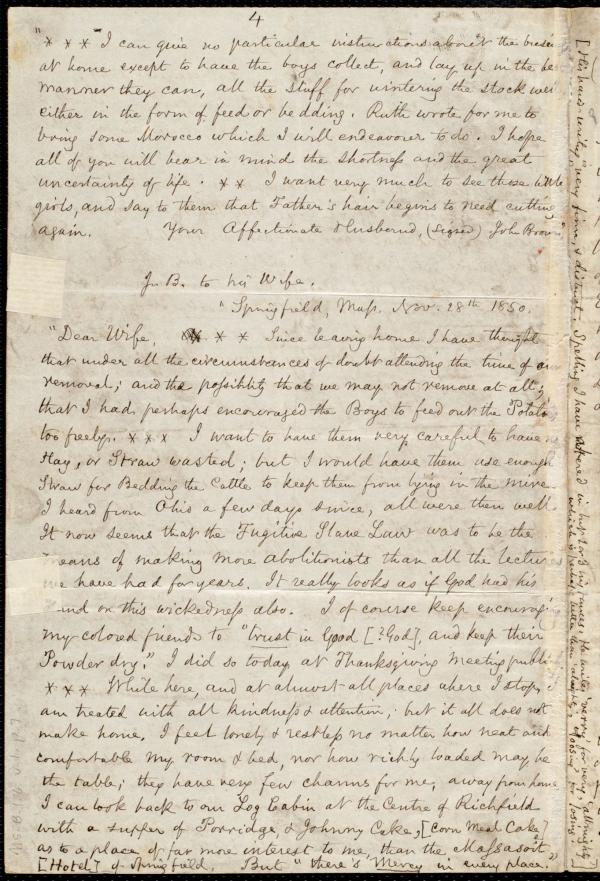 4
"x x x I can give no particular instructions about the busin
at home except to have the boys collect, and lay up in the be
manner they can, all the stuff for wintering the stock wel
either in the form of feed or bedding. Ruth wrote for me to
bring some Morocco which I will endeavour to do. I hope
all of you will bear in mind the shortness and the great
uncertainty of life. x x I want very much to see those little
girls, and say to them that Father's hair begins to need cutting
again. Your Affectionate Husband, (signed) John Brown"
J. B. to his Wife.
"Springfield, Mass. Nov. 28th 1850.
"Dear Wife, x x x Since leaving home I have thought
that under all the circumstances of doubt attending the time of our
removal; and the possibility that we may not remove at all;
that I had perhaps encouraged the Boys to feed out the Potato
too freely. x x x I want to have them very careful to have
Hay, or Straw wasted; but I would have them use enough
Straw for Bedding the Cattle to keep them from lying in the mire.
I heard from Ohio a few days since, all were then well.
It now seems that the Fugitive Slave Law was to be the
means of making more abolitionists than all the lectur
we have had for years. It really looks as if God had his
and on this wickedness also. I of course keep encouragi
my colored friends to "trust in Good [?God], and keep their
Powder dry." I did so today at Thanksgiving meeting publi
x x x While here, and at almost all places where I stop,
am treated with all kindness & attention; but it all does not
make home. I feel lonely & restless no matter how neat and
comfortable my room & bed, nor how richly loaded may be
the table; they have very few charms for me, away from home
I can look back to our Log Cabin at the Centre of Richfield
with a supper of Porridge, & Johnny Cake, [Corn Meal Cake]
as to a place of far more interest to me, than the Massasoit
[Hotel] of Springfield. But "there's Mercy in every place."
[His hand-writing very firm, & distinct. Spelling I have altered in but 2 or 3 instances. He writes 'verry' for very; 'allmighty'
which is perhaps better than 'almighty'; 'loosing' for 'losing'.]